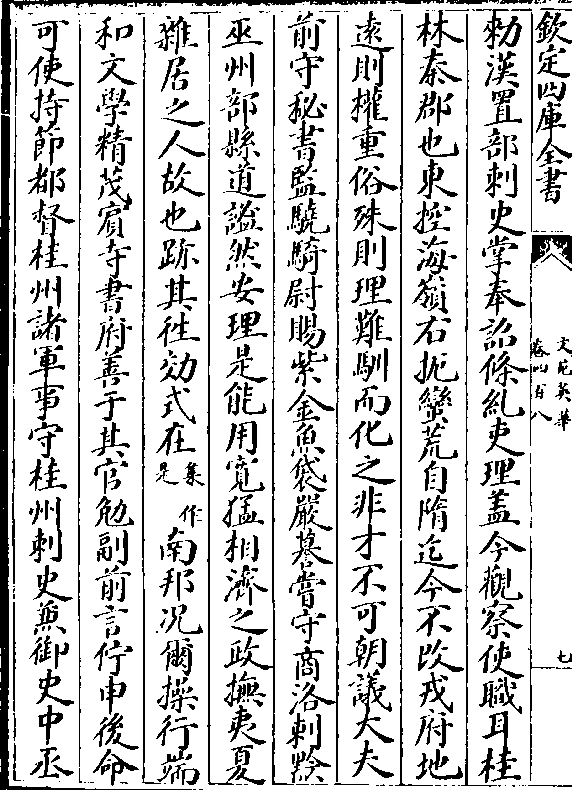 欽定四庫全書
文苑英華
卷四百八
七
勅漢置部刺史掌奉詔條糺吏理蓋今觀察使職耳桂
林秦郡也東控海嶺右扼蠻荒自隋迄今不改戎府地
遠則權重俗殊則理難馴而化之非才不可朝議大夫
前守秘書監驍騎尉賜紫金魚袋嚴謩嘗守商洛刺黔
巫州部縣道謐然安理是能用寛猛相濟之政撫夷夏
雜居之人故也跡其徃効式在集作是南邦况爾操行端
和文學精茂賔寺書府善于其官勉副前言佇申後命
可使持節都督桂州諸軍事守桂州刺史兼御史中丞